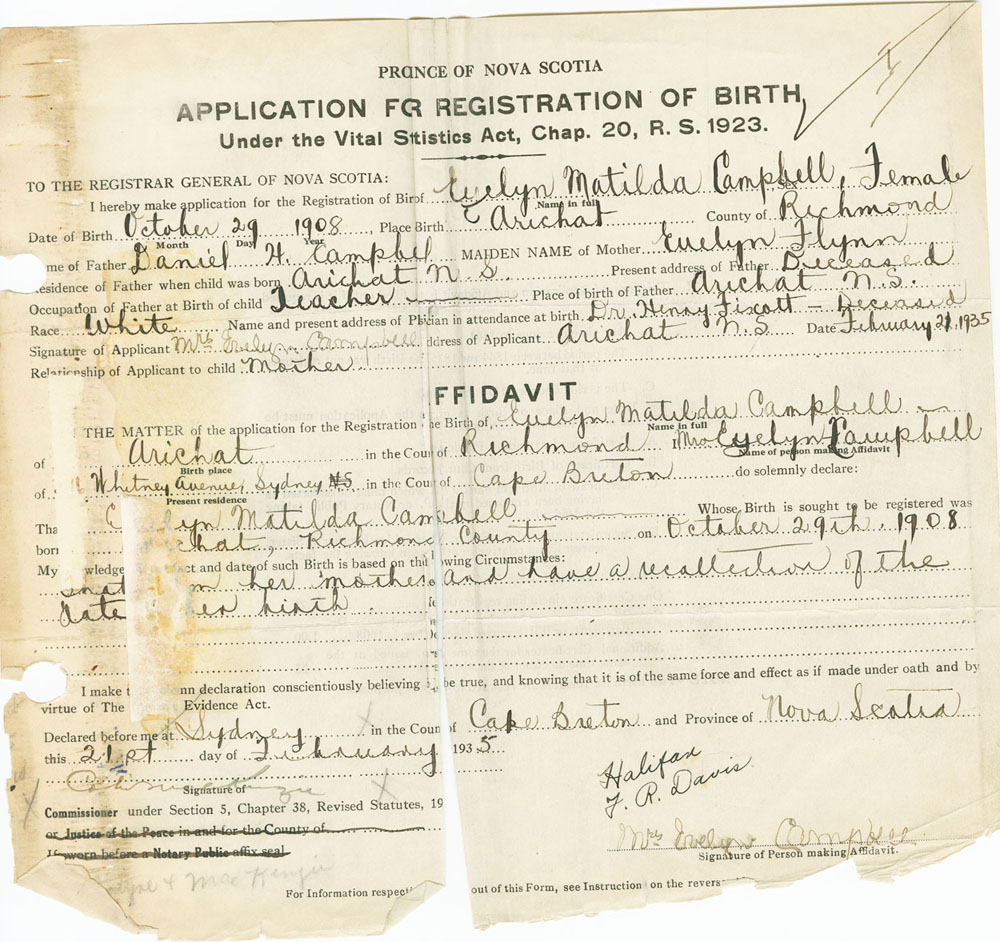 PRO INCE OF NOVA SCOTIA
APPLICATION FOR REGISTRATION OF BIRTH
Under the Vital Sttistics Act, Chap. 20, R. S. 1923.
TO THE REGISTRAR GENERAL OF NOVA SCOTIA:
I hereby make application for the Registration of Birth of Evelyn Matilda Campbell, Female
Name in full Sex
Date of Birth October 29 1908, Place Birth Arichat County of Richmond
Month Day Year
me of Father Daniel H. Campbell MAIDEN NAME of Mother Evelyn Flynn
esidence of Father when child was born Arichat N S Present address of Father Deceased
Occupation of Father at Birth of child Teacher Place of birth of Father Arichat N.S.
Race White Name and present address of Phician in attendance at birth Dr. Henry - Deceased
Signature of Applicant Mrs Evelyn Campbell ddress of Applicant Arichat N.S Date February 21, 1935
Relationship of Applicant to child Mother
FFIDAVIT
THE MATTER of the application for the Registration he Birth of, Evelyn Matilda Campbell
Name in full
of Arichat in the Coun of Richmond I Mrs Evelyn Campbell
Birth place Name of person making Affidavit
of Whitney Avenue, Sydney NS in the Coun of Cape Breton do solemnly declare:
Present residence
Tha lyn Matilda Campbell Whose Birth is sought to be registered was
born chat, Richmond County on October 29th, 1908
My owledge act and date of such Birth is based on the owing Circumstances:
m her mother and have a recollection of the
date her birth.
I make t mn declaration conscientiously believing be true, and knowing that it is of the same force and effect as if made under oath and by
virtue of The Evidence Act.
Declared before me at Sydney in the Coun of Cape Breton and Province of Nova Scotia
this 21st day of February 1935
Halifax
F. R. Davis
Signature of
Commissioner under Section 5, Chapter 38, Revised Statutes, 19
or Justice of the Peace in and for the County of
If sworn before a Notary Public affix seal
Mrs Evelyn Campbell
Signature of Person making Affidavit.
& MacKenzie
For Information respecti out of this Form, see Instruction on the revers